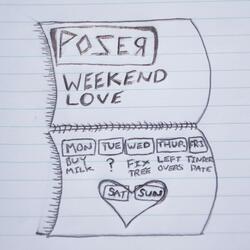 POZER
WEEKEND
LOVE
MON TUE WED THUR FRI
BUY ? FIX LEFT TINDER
MILK TREE OVERS DATE
SAT SUN